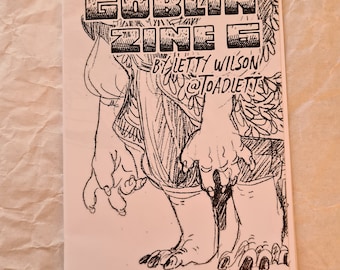 GOBLIN
ZINE 6
BY LETTY WILSON
@TOADLETT